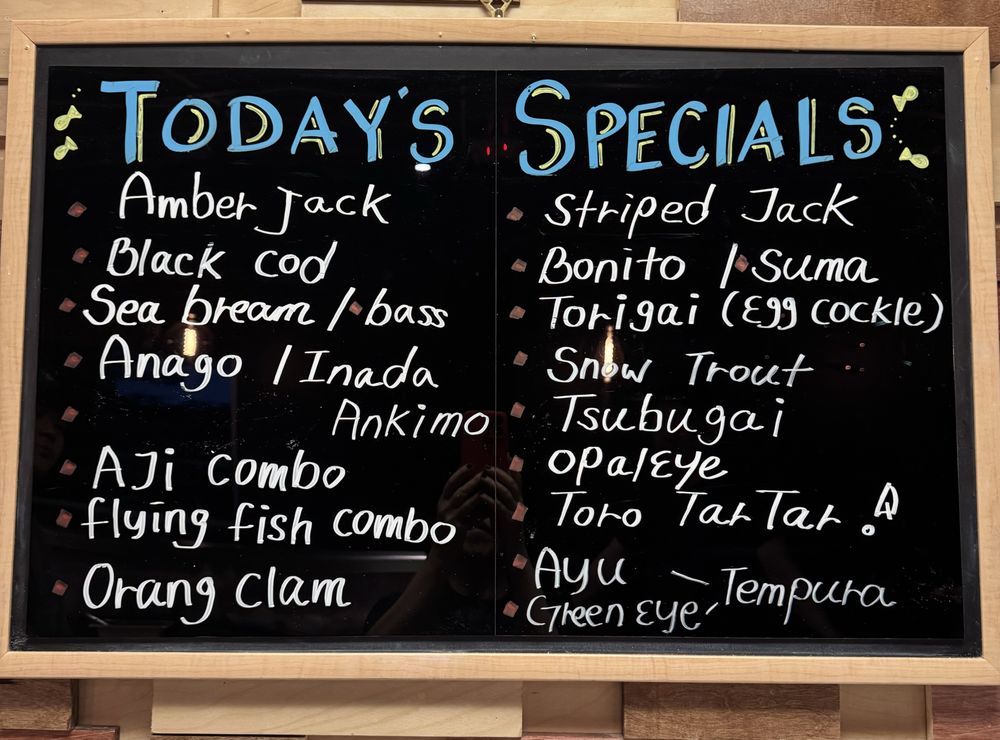 TODAY'S SPECIALS
Amber Jack
Black cod
Sea bream / bass
Anago / Inada
Ankimo
AJi combo
flying fish combo
Orang clam
Striped Jack
Bonito / Suma
Torigai (Egg cockle)
Snow Trout
Tsubugai
OpalEye
Toro TarTar !
Ayu
Green Eye
Tempura